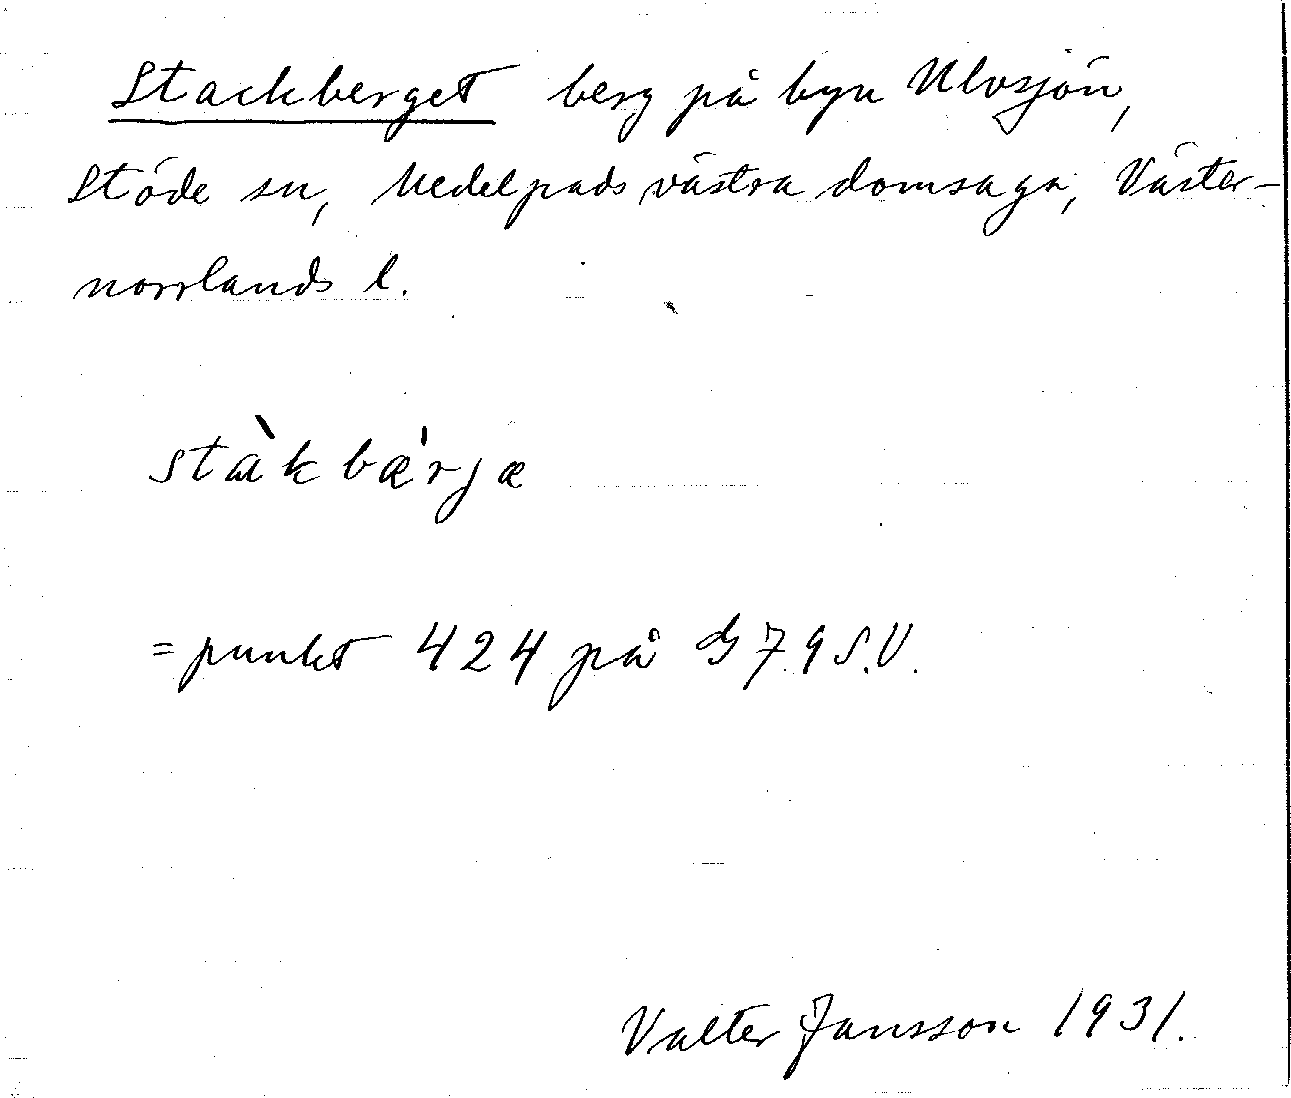 Stackberget berg på byn Ulvsjön,
Stöde sn, Medelpads västra domsaga, Väster-
norrlands l.
stàkbæ̍rjæ
= punkt 424 på G 79 S.V.
Valter Jansson 1931.